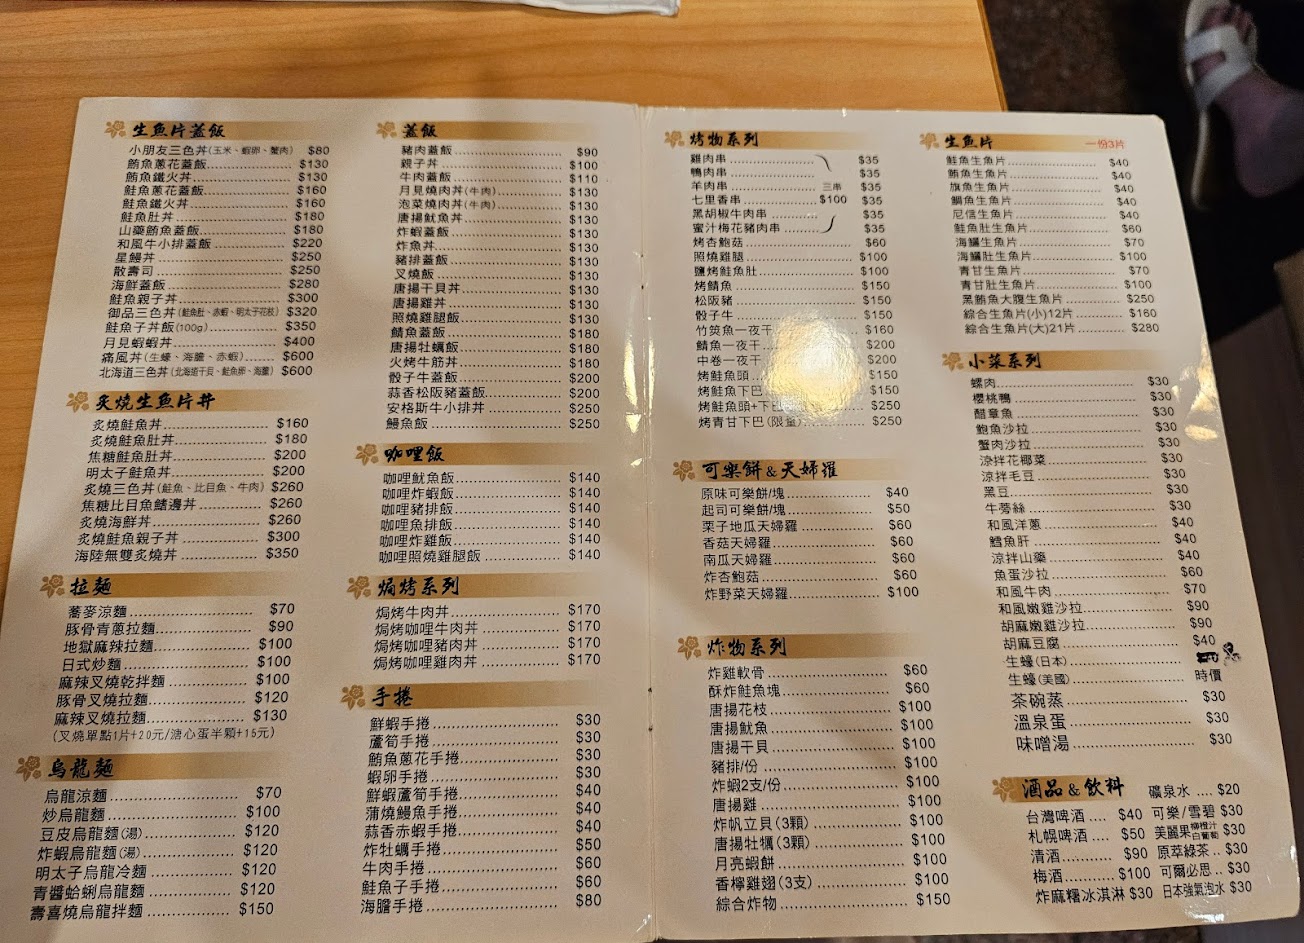 生魚片蓋飯
小朋友三色丼(玉米、蝦卵、蟹肉) $80
鮪魚蔥花蓋飯 $130
鮪魚鐵火丼 $130
鮭魚蔥花蓋飯 $160
鮭魚鐵火丼 $160
鮭魚肚丼 $180
山藥鮪魚蓋飯 $180
和風牛小排蓋飯 $220
星鰻丼 $250
散壽司 $250
海鮮蓋飯 $280
鮭魚親子丼 $300
御品三色丼(鮭魚肚、赤蝦、明太子花枝) $320
鮭魚子丼飯(100g) $350
月見蝦蝦丼 $400
痛風丼(生蠔、海膽、赤蝦) $600
北海道三色丼(北海道干貝、鮭魚卵、海膽) $600
炙燒生魚片丼
炙燒鮭魚丼 $160
炙燒鮭魚肚丼 $180
焦糖鮭魚肚丼 $200
明太子鮭魚丼 $200
炙燒三色丼(鮭魚、比目魚、牛肉) $260
焦糖比目魚鰭邊丼 $260
炙燒海鮮丼 $260
炙燒鮭魚親子丼 $300
海陸無雙炙燒丼 $350
拉麵
蕎麥涼麵 $70
豚骨青蔥拉麵 $90
地獄麻辣拉麵 $100
日式炒麵 $100
麻辣叉燒乾拌麵 $100
豚骨叉燒拉麵 $120
麻辣叉燒拉麵 $130
(叉燒單點1片+20元/溏心蛋半顆+15元)
烏龍麵
烏龍涼麵 $70
炒烏龍麵 $100
豆皮烏龍麵(湯) $120
炸蝦烏龍麵(湯) $120
明太子烏龍冷麵 $120
青醬蛤蜊烏龍麵 $120
壽喜燒烏龍拌麵 $150
蓋飯
豬肉蓋飯 $90
親子丼 $100
牛肉蓋飯 $110
月見燒肉丼(牛肉) $130
泡菜燒肉丼(牛肉) $130
唐揚魷魚丼 $130
炸蝦蓋飯 $130
炸魚丼 $130
豬排蓋飯 $130
叉燒飯 $130
唐揚干貝丼 $130
唐揚雞丼 $130
照燒雞腿飯 $130
鯖魚蓋飯 $180
唐揚牡蠣飯 $180
火烤牛筋丼 $180
骰子牛蓋飯 $200
蒜香松阪豬蓋飯 $200
安格斯牛小排丼 $250
鰻魚飯 $250
咖哩飯
咖哩魷魚飯 $140
咖哩炸蝦飯 $140
咖哩豬排飯 $140
咖哩魚排飯 $140
咖哩炸雞飯 $140
咖哩照燒雞腿飯 $140
焗烤系列
焗烤牛肉丼 $170
焗烤咖哩牛肉丼 $170
焗烤咖哩豬肉丼 $170
焗烤咖哩雞肉丼 $170
手捲
鮮蝦手捲 $30
蘆筍手捲 $30
鮪魚蔥花手捲 $30
蝦卵手捲 $30
鮮蝦蘆筍手捲 $40
蒲燒鰻魚手捲 $40
蒜香赤蝦手捲 $40
炸牡蠣手捲 $50
牛肉手捲 $60
鮭魚子手捲 $60
海膽手捲 $80
烤物系列
雞肉串 $35
鴨肉串 $35
羊肉串 三串 $35
七里香串 $100 $35
黑胡椒牛肉串 $35
蜜汁梅花豬肉串 $35
烤杏鮑菇 $60
照燒雞腿 $100
鹽烤鮭魚肚 $100
烤鯖魚 $150
松阪豬 $150
骰子牛 $150
竹筴魚一夜干 $160
鯖魚一夜干 $200
中卷一夜干 $200
烤鮭魚頭 $150
烤鮭魚下巴 $150
烤鮭魚頭+下巴 $250
烤青甘下巴(限量) $250
可樂餅&天婦羅
原味可樂餅/塊 $40
起司可樂餅/塊 $50
栗子地瓜天婦羅 $60
香菇天婦羅 $60
南瓜天婦羅 $60
炸杏鮑菇 $60
炸野菜天婦羅 $100
炸物系列
炸雞軟骨 $60
酥炸鮭魚塊 $60
唐揚花枝 $100
唐揚魷魚 $100
唐揚干貝 $100
豬排/份 $100
炸蝦2支/份 $100
唐揚雞 $100
炸帆立貝(3顆) $100
唐揚牡蠣(3顆) $100
月亮蝦餅 $100
香檸雞翅(3支) $100
綜合炸物 $150
生魚片 一份3片
鮭魚生魚片 $40
鮪魚生魚片 $40
旗魚生魚片 $40
鯛魚生魚片 $40
尼信生魚片 $40
鮭魚肚生魚片 $60
海鱺生魚片 $70
海鱺肚生魚片 $100
青甘生魚片 $70
青甘肚生魚片 $100
黑鮪魚大腹生魚片 $250
綜合生魚片(小)12片 $160
綜合生魚片(大)21片 $280
小菜系列
螺肉 $30
櫻桃鴨 $30
醋章魚 $30
鮑魚沙拉 $30
蟹肉沙拉 $30
涼拌花椰菜 $30
涼拌毛豆 $30
黑豆 $30
牛蒡絲 $30
和風洋蔥 $40
鱈魚肝 $40
涼拌山藥 $40
魚蛋沙拉 $60
和風牛肉 $70
和風嫩雞沙拉 $90
胡麻嫩雞沙拉 $90
胡麻豆腐 $40
生蠔(日本)
生蠔(美國) 時價
茶碗蒸 $30
溫泉蛋 $30
味噌湯 $30
酒品&飲料 礦泉水 $20
台灣啤酒 $40 可樂/雪碧 $30
札幌啤酒 $50 美麗果柳橙汁白葡萄 $30
清酒 $90 原萃綠茶 $30
梅酒 $100 可爾必思 $30
炸麻糬冰淇淋 $30 日本強氣泡水 $30